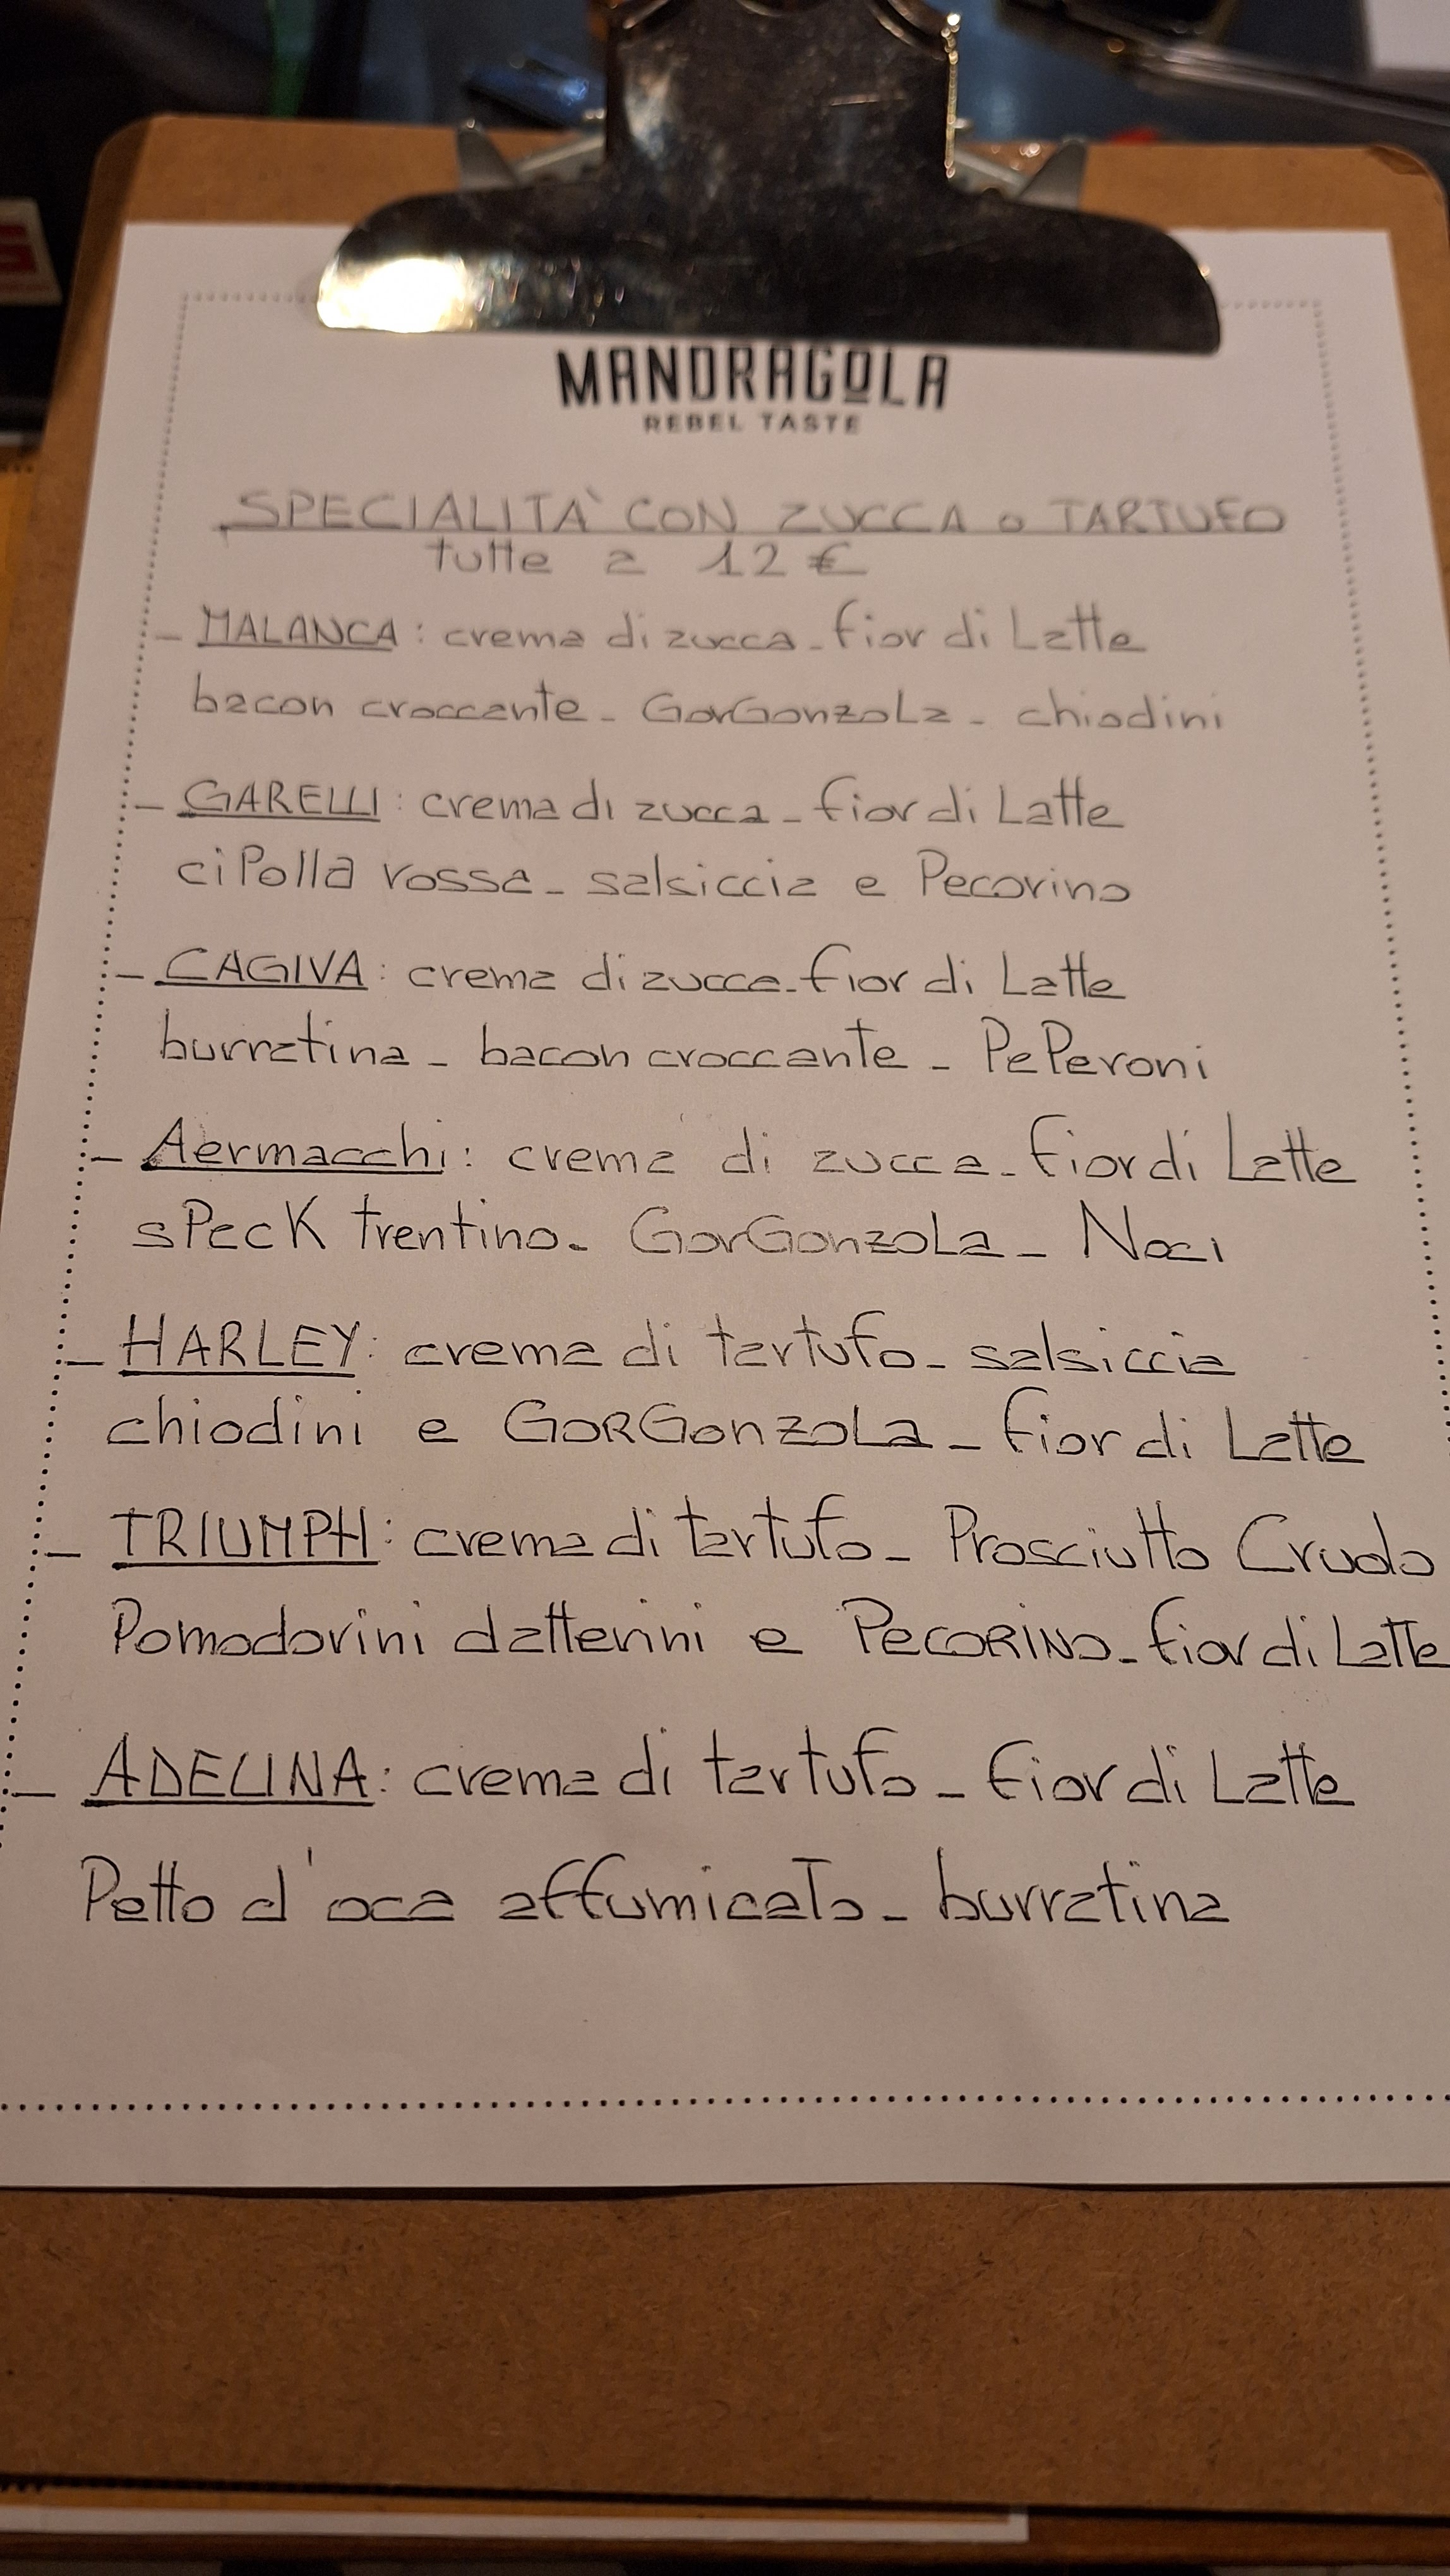 MANDRAGOLA
REBEL TASTE
SPECIALITA' CON ZUCCA o TARTUFO
tutte a 12 €
- MALANCA: crema di zucca - fior di Latte
bacon croccante - GorGonzoLa - chiodini
- GARELLI: crema di zucca - fior di Latte
ciPolla rossa - salsiccia e Pecorino
- CAGIVA: crema di zucca - fior di Latte
burratina - bacon croccante - PePeroni
- Aermacchi: crema di zucca - fior di Latte
sPecK trentino - GorGonzoLa - Noci
- HARLEY: crema di tartufo - salsiccia
chiodini e GORGonzoLa - fior di Latte
- TRIUMPH: crema di tartufo - Prosciutto Crudo
Pomodorini datterini e PECORINO - fior di Latte
- ADELINA: crema di tartufo - fior di Latte
Petto d'oca affumicato - burratina